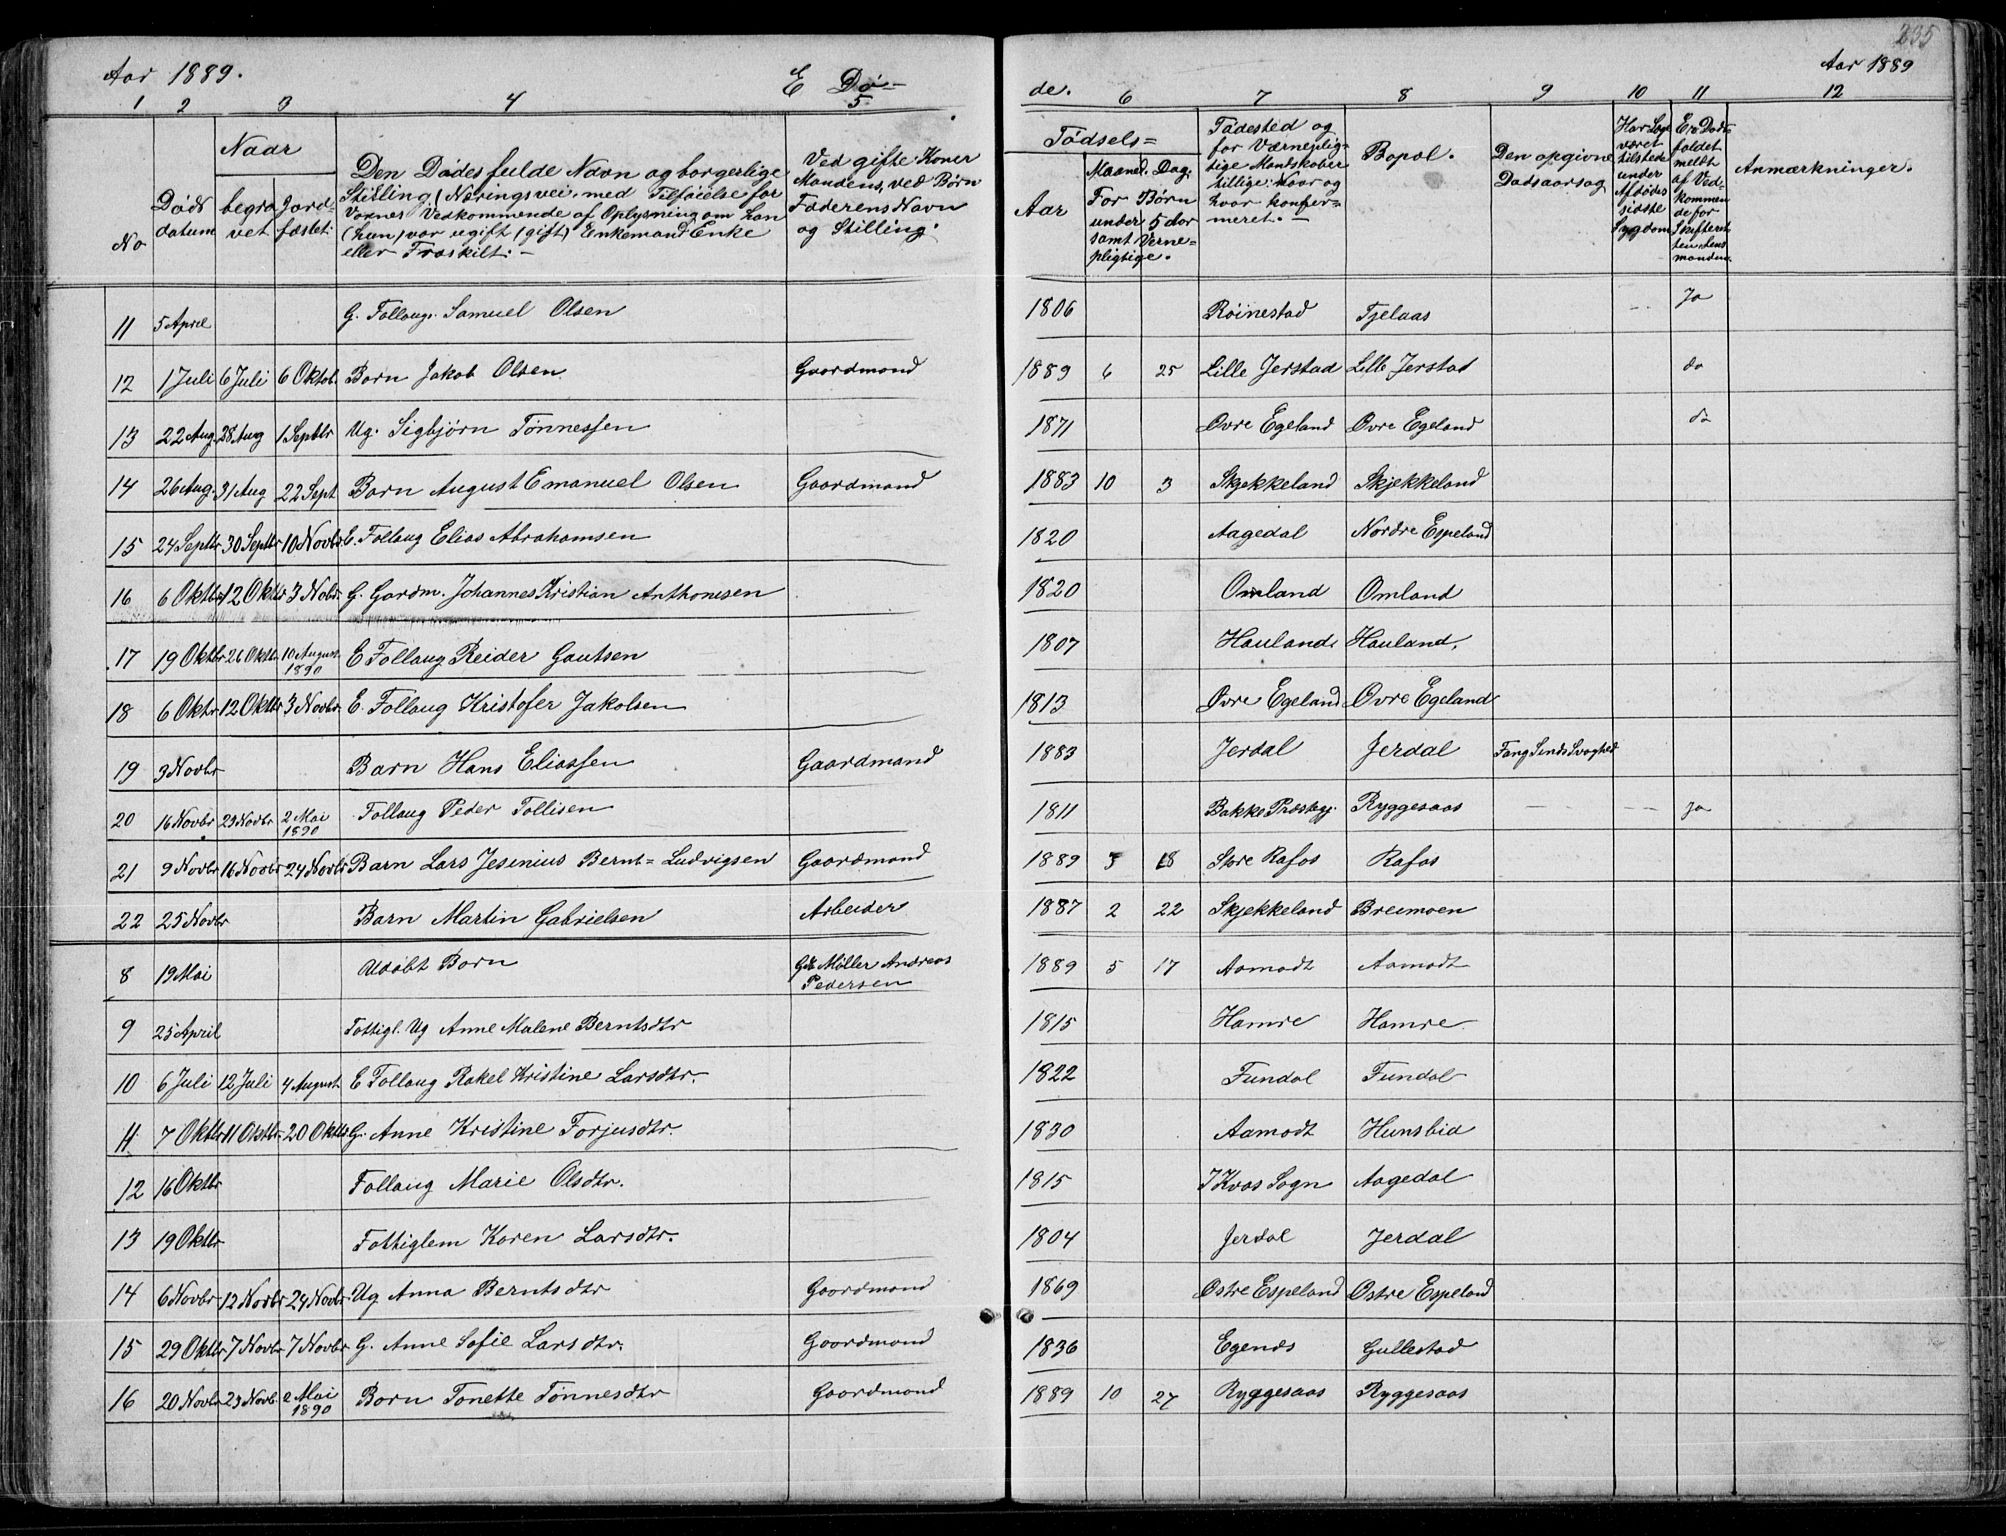 235
Aar 1889.
E Dø-
de.
Aar 1889
1 2 3 4 5.
6 7 8 9 10 11 12
No
Døds datum
Naar
begravet
Jordfæstet:
Den Dødes fulde Navn og borgerlige
Stilling (Næringsvei) med Tilføielse for
Voxnes Vedkommende af Oplysning om han
(hun) var ugift (gift) Enkemand Enke
eller Fraskilt. –
Ved gifte Koner
Mandens, ved Børn
Faderens Navn
og Stilling.
Fødsels=
Aar
Maaned. Dag.
For Børn
under 5 Aar
samt Verne-
pligtige.
Fødested og
for Værneplig-
tige Mandskaber
tillige: Naar og
hvor konfir-
meret. –
Bopæl.
Den opgivne
Dødsaarsag
Har Læge
været
tilstede
under
Afdødes
sidste
Sygdom
Er Døds-
faldet
meldt
af Ved-
kommen
de for
Skifteret-
ten Lens
manden.
Anmærkninger.
11 5 April G. Follaug. Samuel Olsen 1806 Røinestad Fjelaas Ja
12 1 Juli 6 Juli 6 Oktob. Barn Jakob Olsen Gaardmand 1889 6 25 Lille Jerstad Lille Jerstad do
13 22 Aug. 28 Aug 1 Septbr Ug. Sigbjørn Tønnessen 1871 Øvre Egeland Øvre Egeland do
14 26 Aug. 31 Aug 22 Sept Barn August Emanuel Olsen Gaardmand 1883 10 3 Skjekkeland Skjekkeland
15 24 Septbr 30 Septbr 10 Novbr. E. Follaug Elias Abrahamsen 1820 Aagedal Nordre Espeland
16 6 Oktbr 12 Oktbr 3 Nobr. G. Gardm. Johannes Kristian Anthonesen 1820 Omland Omland
17 19 Oktbr 26 Oktbr. 10 August. 1890 E Follaug Reider Gautsen 1807 Hauland. Hauland.
18 6 Oktr 12 Oktbr 3 Novbr E. Follaug Kristofer Jakobsen 1813 Øvre Egeland Øvre Egeland
19 3 Novbr Barn Hans Eliassen Gaardmand 1883 Jerdal Jerdal
20 16 Novbr 23 Novbr 2 Mai 1890 Follaug Peder Tollisen 1811 Bakke Præstegj. Ryggesaas Ja
21 9 Novbr 16 Novbr 24 Novbr Barn Lars Jesinius Bernt= Ludvigsen Gaardmand 1889 3 18 Store Rafos Rafos
22 25 Novbr Barn Martin Gabrielsen Arbeider 1887 2 22 Skjekkeland Breimoen
8 19 Mai Udøbt Barn Møller Andreas Pedersen 1889 5 17 Aamodt Aamodt
9 25 April Fattigl. Ug Anne Malene Berntsdtr 1815 Hamre Hamre
10 6 Juli 12 Juli 4 August. E Follaug Rakel Kristine Larsdtr. 1822 Fundal Fundal
11 7 Oktbr 11 Oktbr. 20 Oktbr G. Anne Kristine Torjusdtr. 1830 Aamodt Hunsbid
12 16 Oktbr Follaug Marie Olsdtr. 1815 I Kvas Sogn Aagedal
13 19 Oktbr Fattiglem Karen Larsdtr. 1804 Jerdal Jerdal
14 6 Novbr 12 Novbr 24 Novbr. Ug. Anna Berntsdtr Gaardmand 1869 Østre Espeland Østre Espeland
15 29 Oktbr 7 Novbr 7 Novbr G. Anne Sofie Larsdtr. Gaardmand 1836 Egends Gullestad
16 20 Novbr 23 Novb. 2 Mai 1890 Barn Tonette Tønnesdtr Gaardmand 1889 10 27 Ryggesaas Ryggesaas